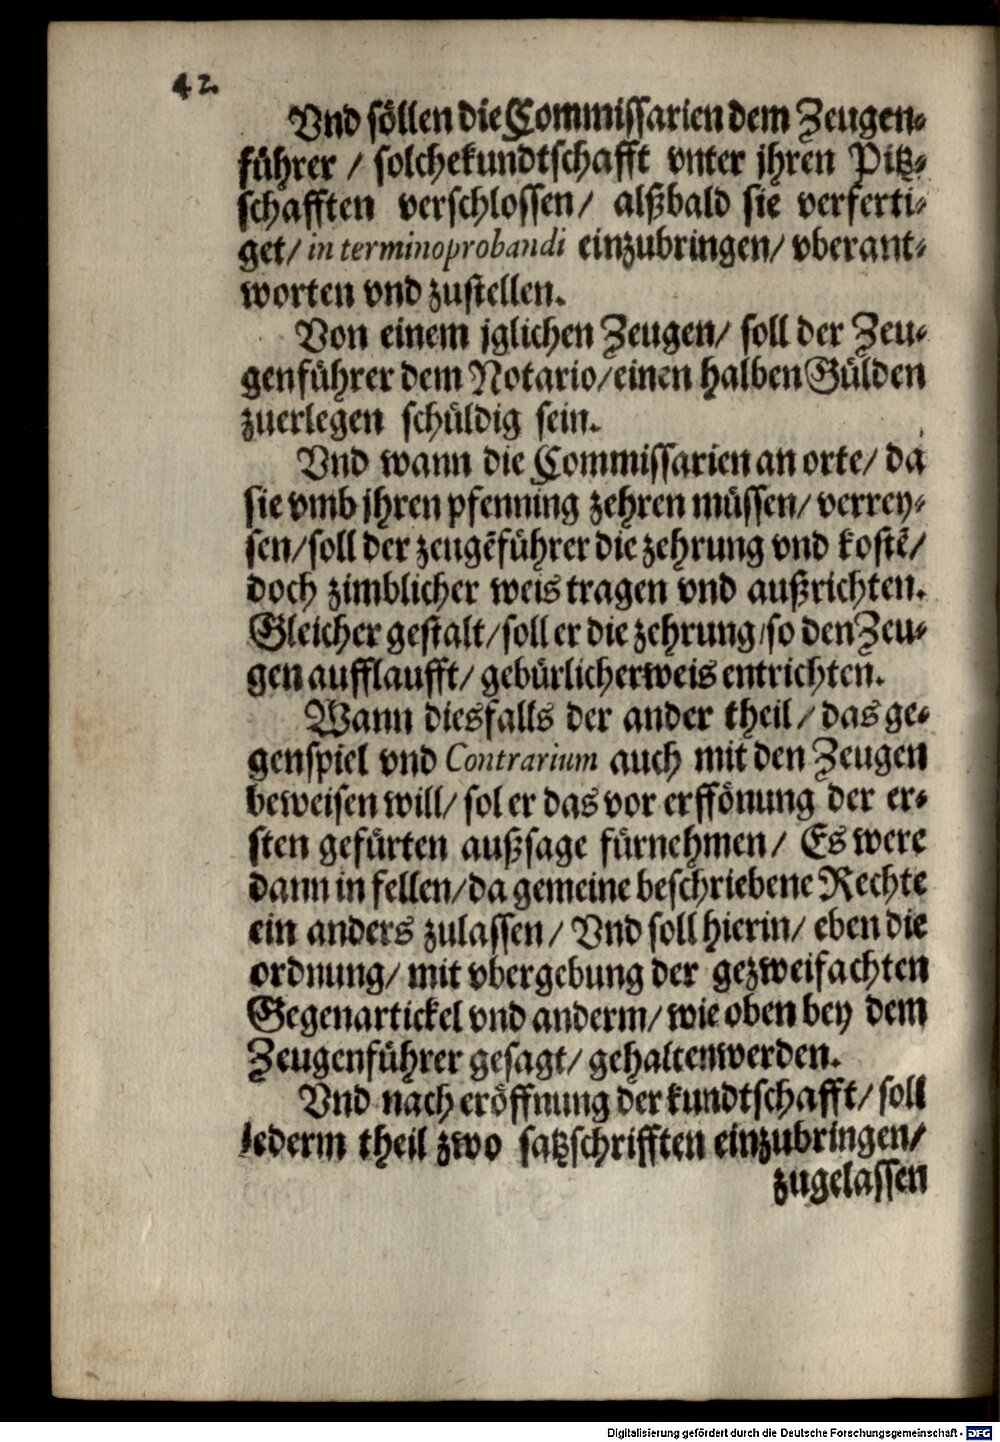 42.
Vnd söllen die Commissarien dem Zeugen-
führer / solchekundtschafft vnter jhren Pitz-
schafften verschlossen/ alßbald sie verferti-
get/ in termino probandi einzubringen/ vberant-
worten vnd zustellen.
Von einem jglichen Zeugen/ soll der Zeu-
genführer dem Notario/ einen halben Gülden
zuerlegen schüldig sein.
Vnd wann die Commissarien an orte/ da
sie vmb jhren pfenning zehren müssen/ verrey-
sen/ soll der zeugẽführer die zehrung vnd kostẽ/
doch zimblicher weis tragen vnd außrichten.
Gleicher gestalt/ soll er die zehrung/ so den Zeu-
gen aufflaufft/ gebürlicherweis entrichten.
Wann diesfalls der ander theil/ das ge-
genspiel vnd Contrarium auch mit den Zeugen
beweisen will/ sol er das vor erffönung der er-
sten gefürten außsage fürnehmen/ Es were
dann in fellen/ da gemeine beschriebene Rechte
ein anders zulassen/ Vnd soll hierin/ eben die
ordnung/ mit vbergebung der gezweifachten
Gegenartickel vnd anderm/ wie oben bey dem
Zeugenführer gesagt/ gehaltenwerden.
Vnd nach eröffnung der kundtschafft/ soll
jederm theil zwo satzschrifften einzubringen/
zugelassen
Digitalisierung gefördert durch die Deutsche Forschungsgemeinschaft - DFG